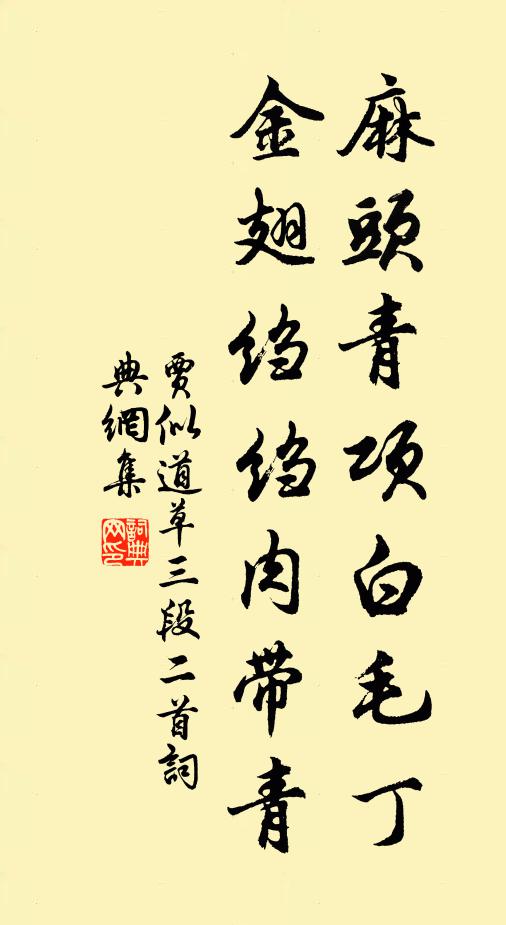 麻頭青項白毛丁
金翅绉绉肉带青
賈似道草三段二首詞
典網集
詞典網印